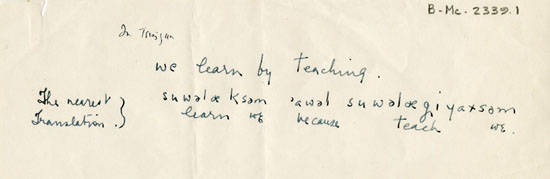 B-Mc. 2339.1
In
we learn by teaching.
The nearest } suwəlæksəm ʼawəl suwəlægiyaxsəm
Translation. } learn we because teach we.